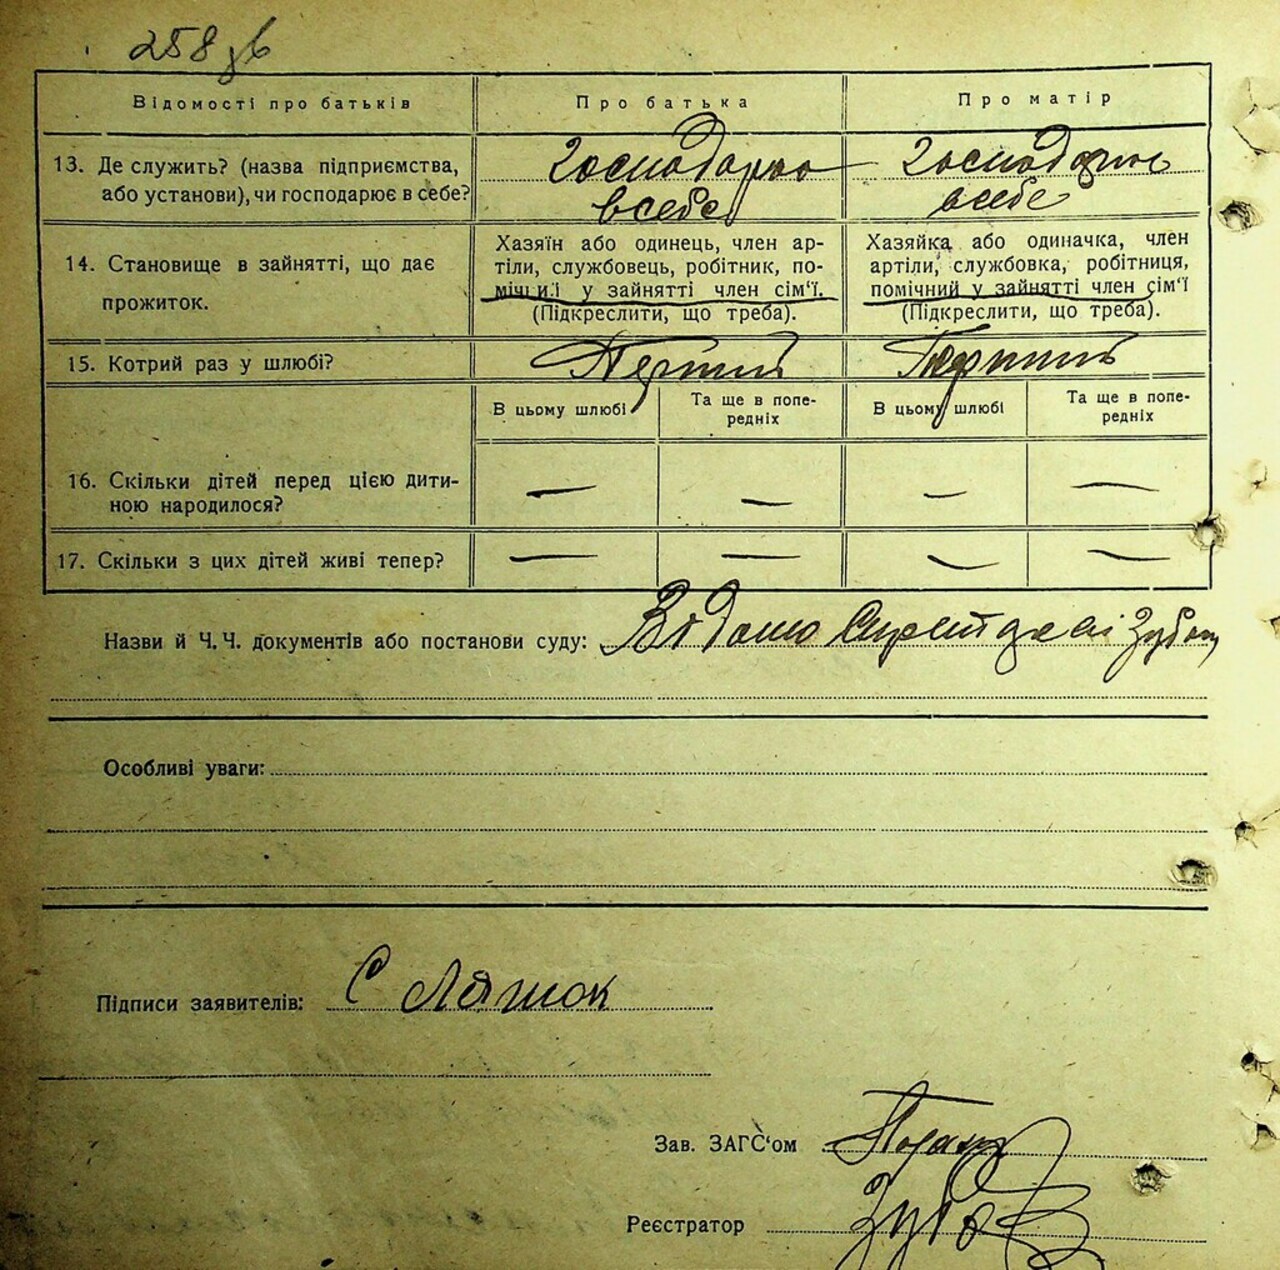 258 зв
Відомості про батьків
Про батька
Про матір
13. Де служить? (назва підприємства,
або установи), чи господарює в себе?
Господарює
в себе
Господарює
в себе
14. Становище в зайнятті, що дає
прожиток.
Хазяїн або одинець, член ар-
тіли, службовець, робітник, по-
мічний у зайнятті член сім'ї.
(Підкреслити, що треба).
Хазяйка або одиначка, член
артіли, службовка, робітниця,
помічний у зайнятті член сім'ї
(Підкреслити, що треба).
15. Котрий раз у шлюбі?
Перший
Перший
В цьому шлюбі
Та ще в попе-
редніх
В цьому шлюбі
Та ще в попе-
редніх
16. Скільки дітей перед цією дити-
ною народилося?
— — — —
17. Скільки з цих дітей живі тепер?
— — — —
Назви й Ч. Ч. документів або постанови суду: Видано
Особливі уваги:
Підписи заявителів: С Ляшок
Зав. ЗАГС'ом
Реєстратор